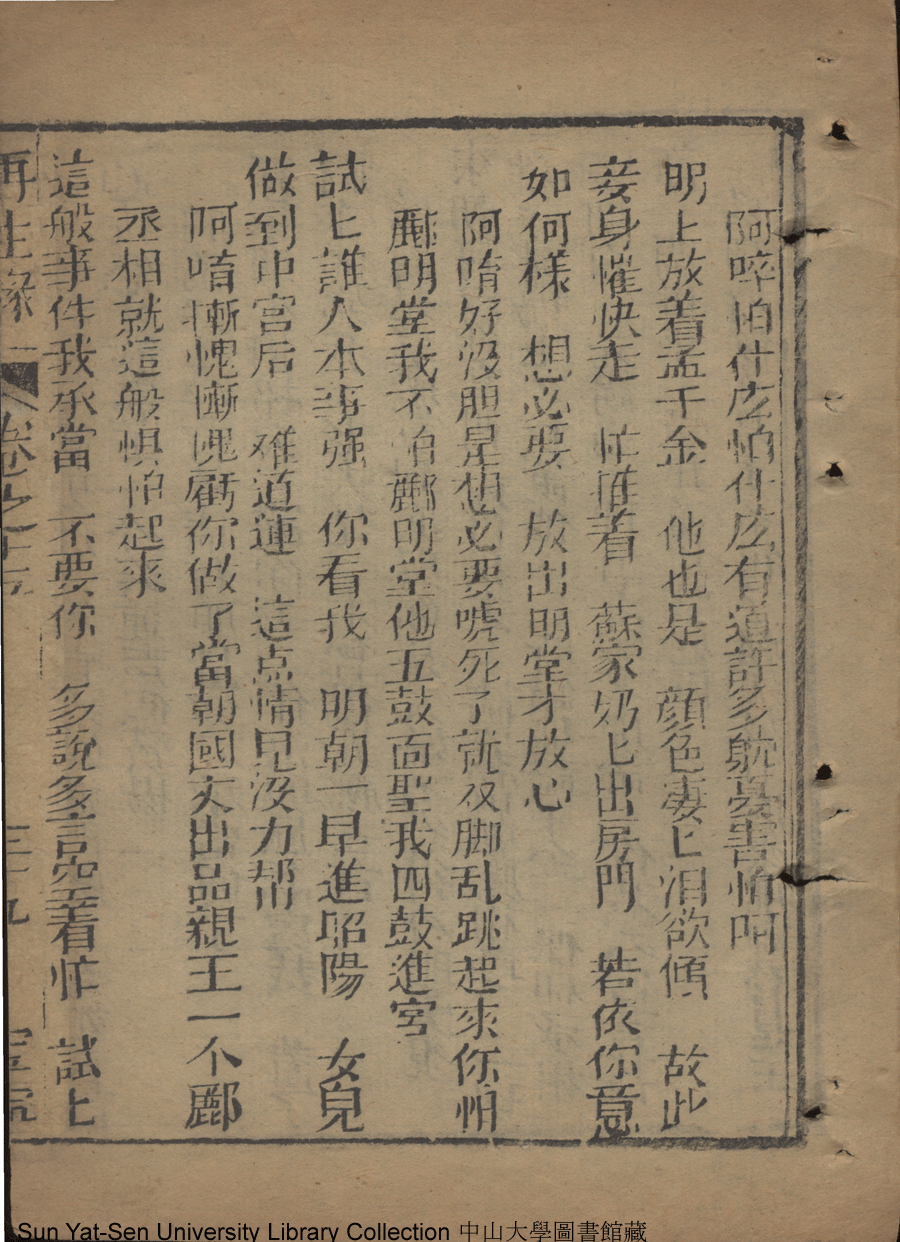 阿啐怕什庅怕什庅有道許多躭憂害怕呵
明上放着孟千金 他也是 顔色凄匕泪欲傾 故此
妾身催快走 忙推着 蘇家奶匕出房門 若依你意
如何樣 想必要 放出明堂才放心
阿唷好没胆是想必要唬死了就双脚乱跳起來你怕
酈明堂我不怕酈明堂他五鼓面聖我四鼓進宫
試匕誰人本事强 你看我 明朝一早進昭陽 女兒
做到中宫后 难道連 這点情兒没力帮
阿唷慚愧慚愧虧你做了當朝國丈出品親王一个酈
丞相就這般惧怕起來
這般事件我承當 不要你 多說多言空着忙 試匕
再生緣 卷之十 三十九
Sun Yat-Sen University Library Collection 中山大學圖書館藏